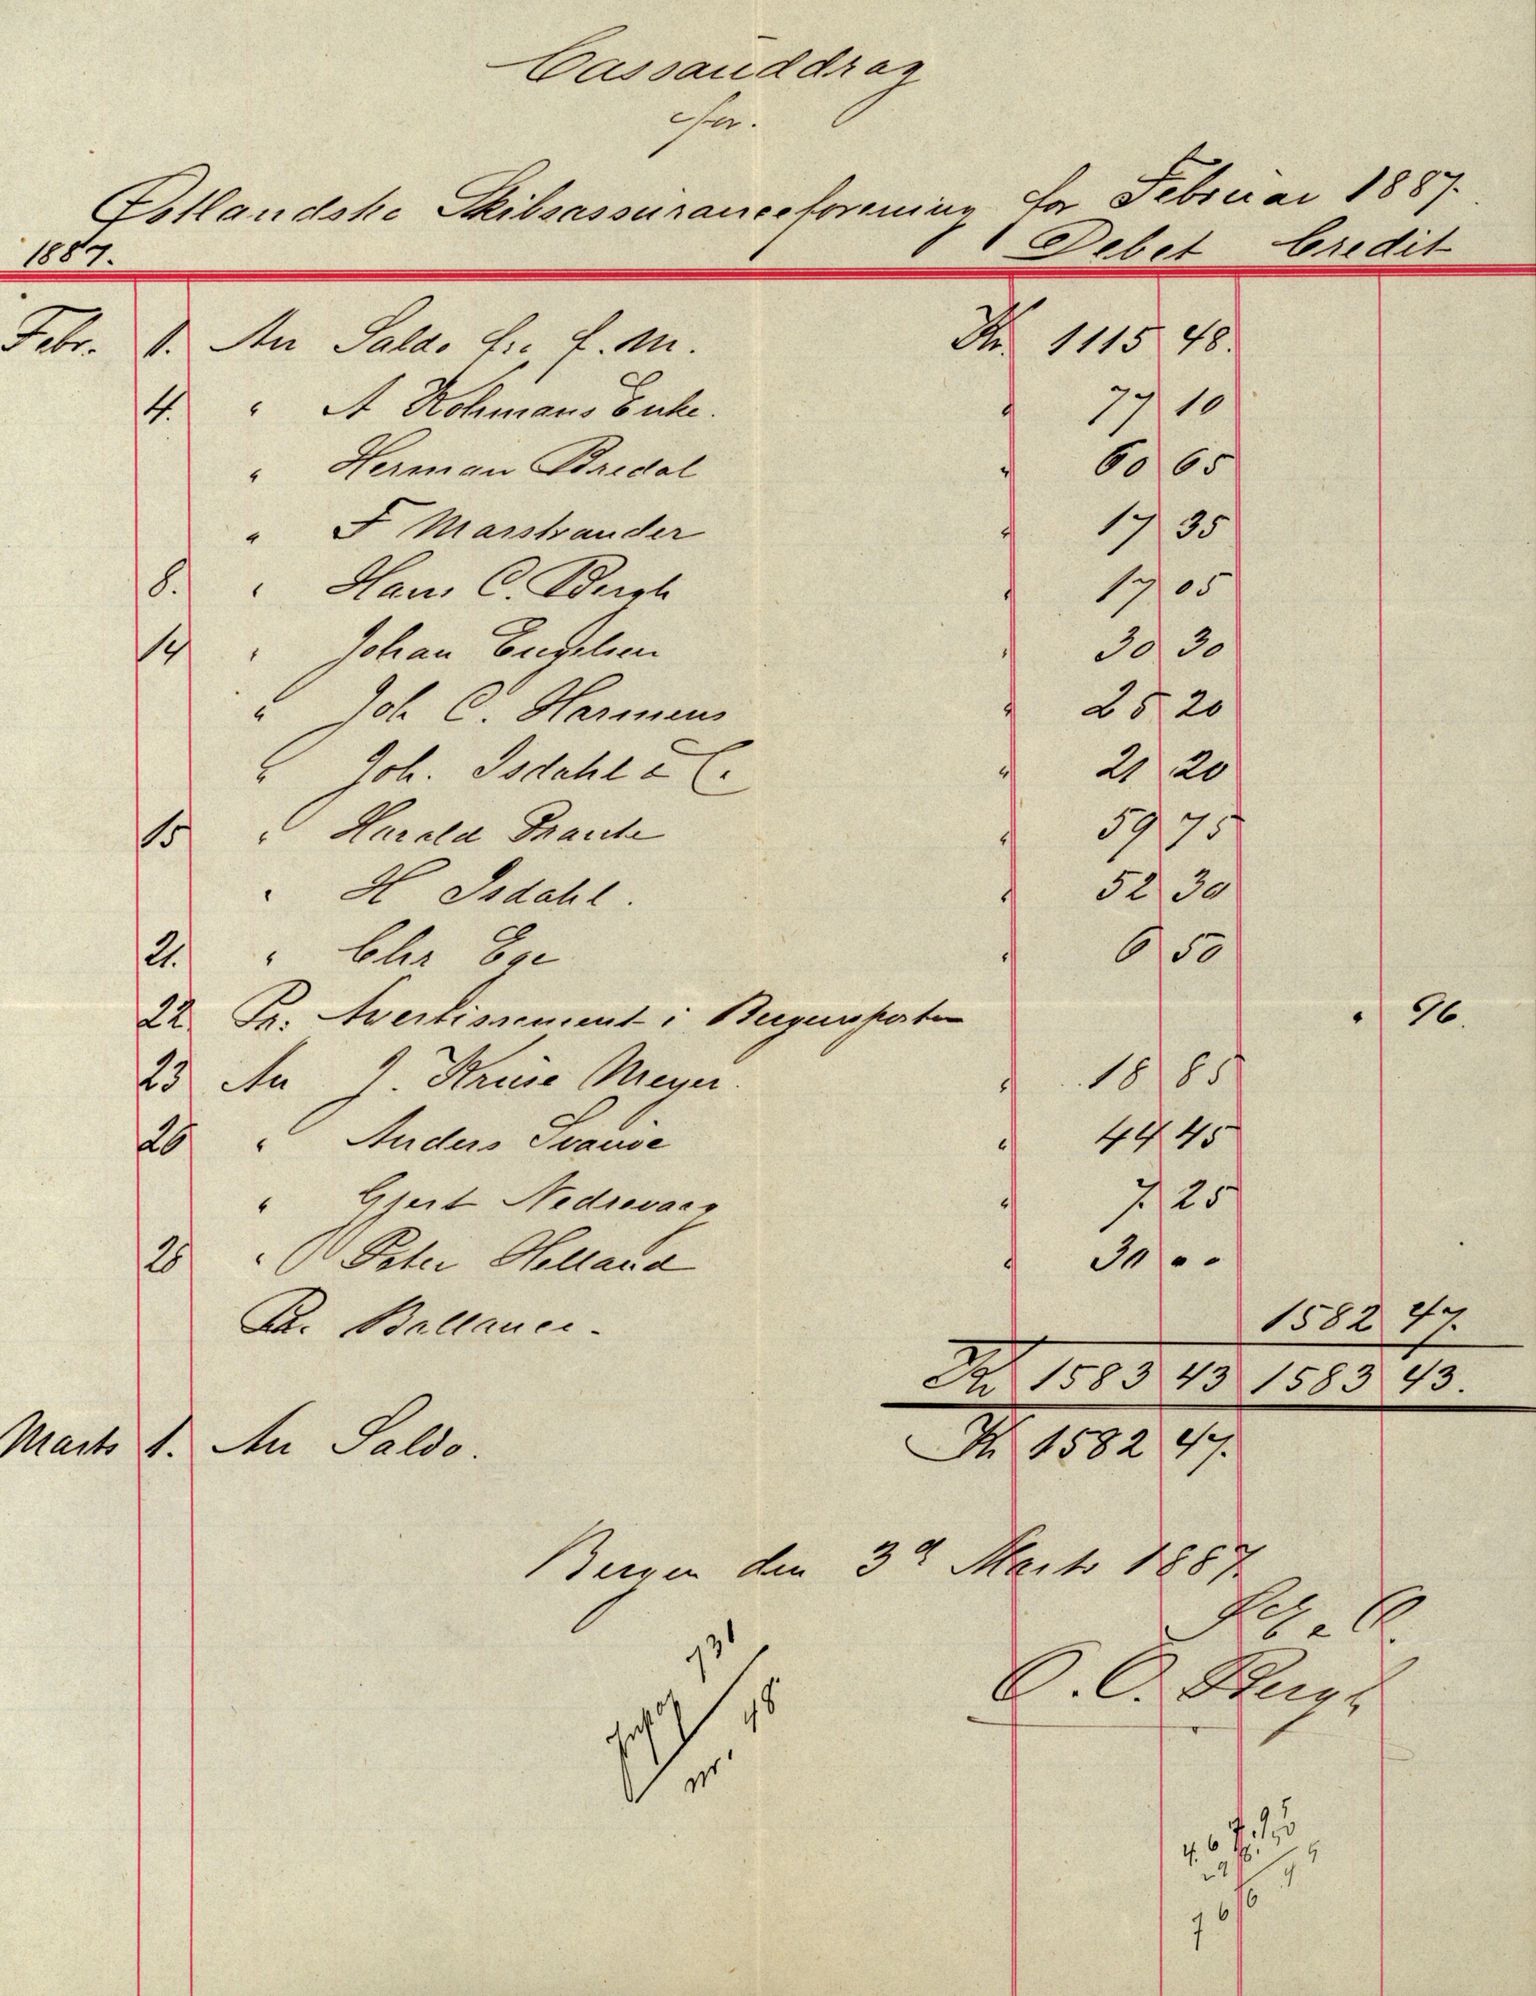 Cassauddrag
for
Østlandske Skibsassuranceforening for Februar 1887.
1887. Debet Credit
Febr. 1. An Saldo fra f. M. Kr. 1115 48.
4. " A Kohmans Enke. " 77 10
" Herman Bredal " 60 65
" F Marstrander " 17 35
8. " Hans C. Bergh " 17 05
14 " Johan Engelsen " 30 30
" Joh C. Harmens " 25 20
" Joh. Isdahl & C. " 21 20
15 " Harald Grante " 59 75
" H Isdahl. " 52 30
21. " Chr Ege " 6 50
22 Pr. Avertissement i Bergensposten " 96.
23 An J. Kruse Meyer. " 18 85
26 " Anders Svanøe " 44 45
" Gjert Nedrevaag " 7. 25
28 " Peter Helland " 30 "
Pr. Ballance. 1582 47.
Kr 1583 43 1583 43.
Marts 1. An Saldo. Kr 1582 47.
Bergen den 3d Marts 1887.
C. C. Bergh
731
nr. 48